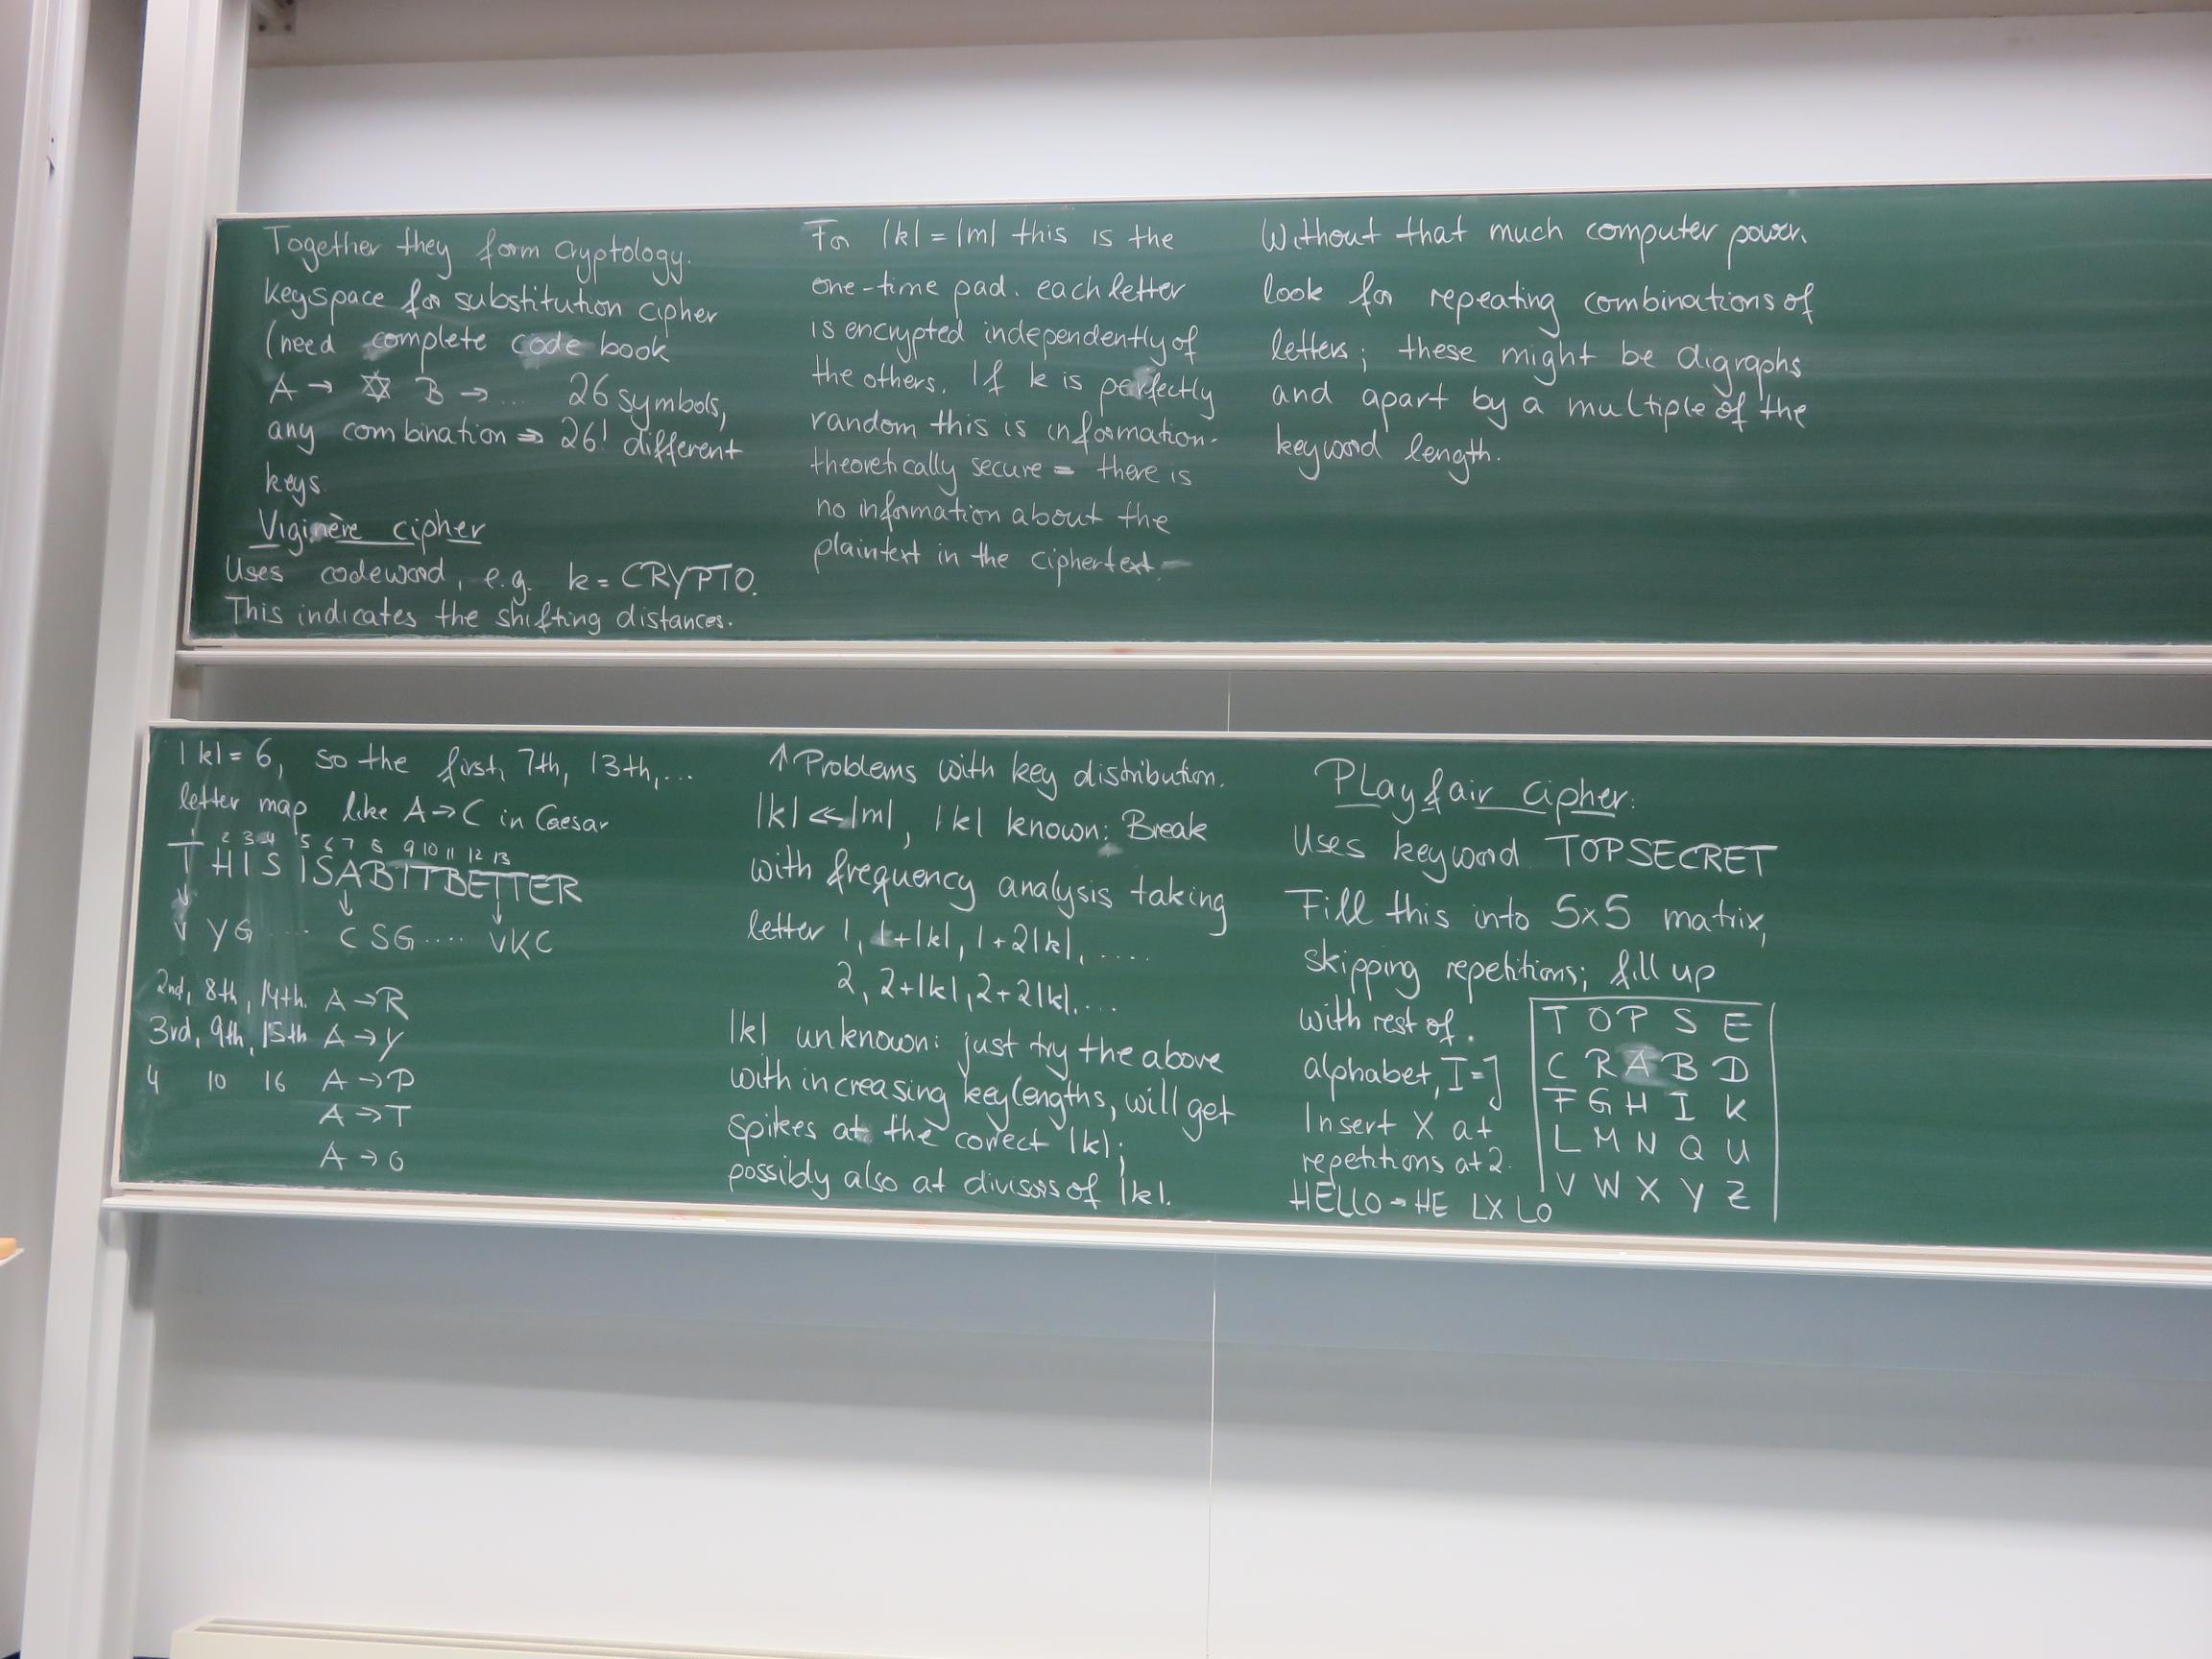 Together they form Cryptology.
keyspace for substitution cipher
(need complete code book
A → ✡ B → ... 26 symbols,
any combination ⇒ 26! different
keys.
Viginère cipher
Uses codeword, e.g. k = CRYPTO.
This indicates the shifting distances.
For |k| = |m| this is the
one-time pad. each letter
is encrypted independently of
the others. If k is perfectly
random this is information-
theoretically secure = there is
no information about the
plaintext in the ciphertext.
Without that much computer power.
look for repeating combinations of
letters; these might be digraphs
and apart by a multiple of the
keyword length.
|k| = 6, so the first, 7th, 13th, ...
letter map like A → C in Caesar
1 2 3 4 5 6 7 8 9 10 11 12 13
THIS ISABITBETTER
↓ ↓ ↓
V YG .... CSG .... VKC
2nd, 8th, 14th. A → R
3rd, 9th, 15th A → Y
4 10 16 A → P
A → T
A → O
↑ Problems with key distribution.
|k| ≪ |m|, |k| known: Break
with frequency analysis taking
letter 1, 1+|k|, 1+2|k|, .....
2, 2+|k|, 2+2|k|, ...
|k| unknown: just try the above
with increasing keylengths, will get
spikes at the correct |k|;
possibly also at divisors of |k|.
PLayfair cipher:
Uses keyword TOPSECRET
Fill this into 5x5 matrix,
skipping repetitions; fill up
with rest of.
alphabet, I=J
Insert X at
repetitions at 2.
HELLO → HE LX LO
T O P S E
C R A B D
F G H I K
L M N Q U
V W X Y Z